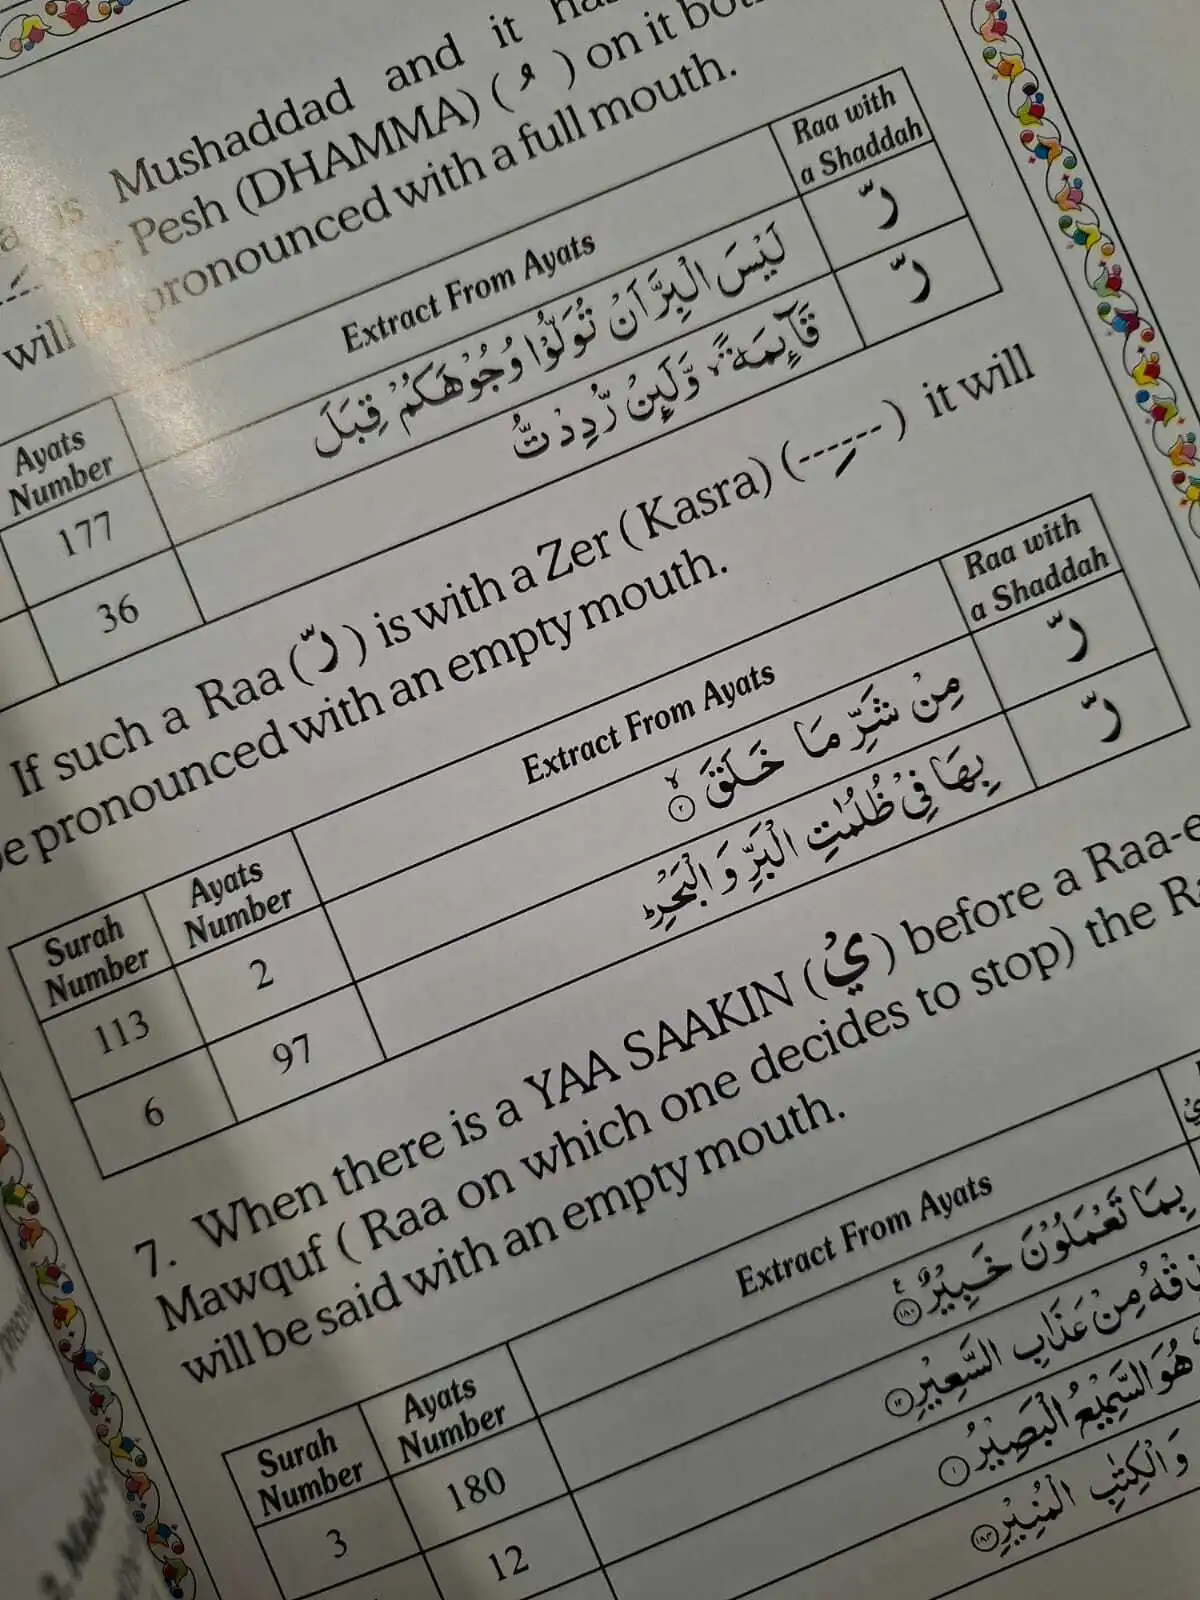 is Mushaddad and it
or Pesh (DHAMMA) ( ُ ) on it
will be pronounced with a full mouth.
Ayats Number | Extract From Ayats | Raa with a Shaddah
177 | لَيْسَ الْبِرَّ اَنْ تُوَلُّوْا وُجُوْهَكُمْ قِبَلَ | رّ
36 | قَآىِٕمَةً ۙ وَّلَىِٕنْ رُّدِدْتُّ | رّ
If such a Raa ( رّ ) is with a Zer ( Kasra) (---ِ---) it will
be pronounced with an empty mouth.
Surah Number | Ayats Number | Extract From Ayats | Raa with a Shaddah
113 | 2 | مِنْ شَرِّ مَا خَلَقَ ۙ ٢ | رّ
6 | 97 | بِهَا فِيْ ظُلُمٰتِ الْبَرِّ وَ الْبَحْرِ ؕ | رّ
7. When there is a YAA SAAKIN ( يْ ) before a Raa-e
Mawquf ( Raa on which one decides to stop) the
will be said with an empty mouth.
Surah Number | Ayats Number | Extract From Ayats
3 | 180 | بِمَا تَعْمَلُوْنَ خَبِيْرٌ ١٨٠
12 | مِنْ عَذَابِ السَّعِيْرِ ١٢
هُوَ السَّمِيْعُ الْبَصِيْرُ ١
وَالْكِتٰبِ الْمُنِيْرِ ١٨٤